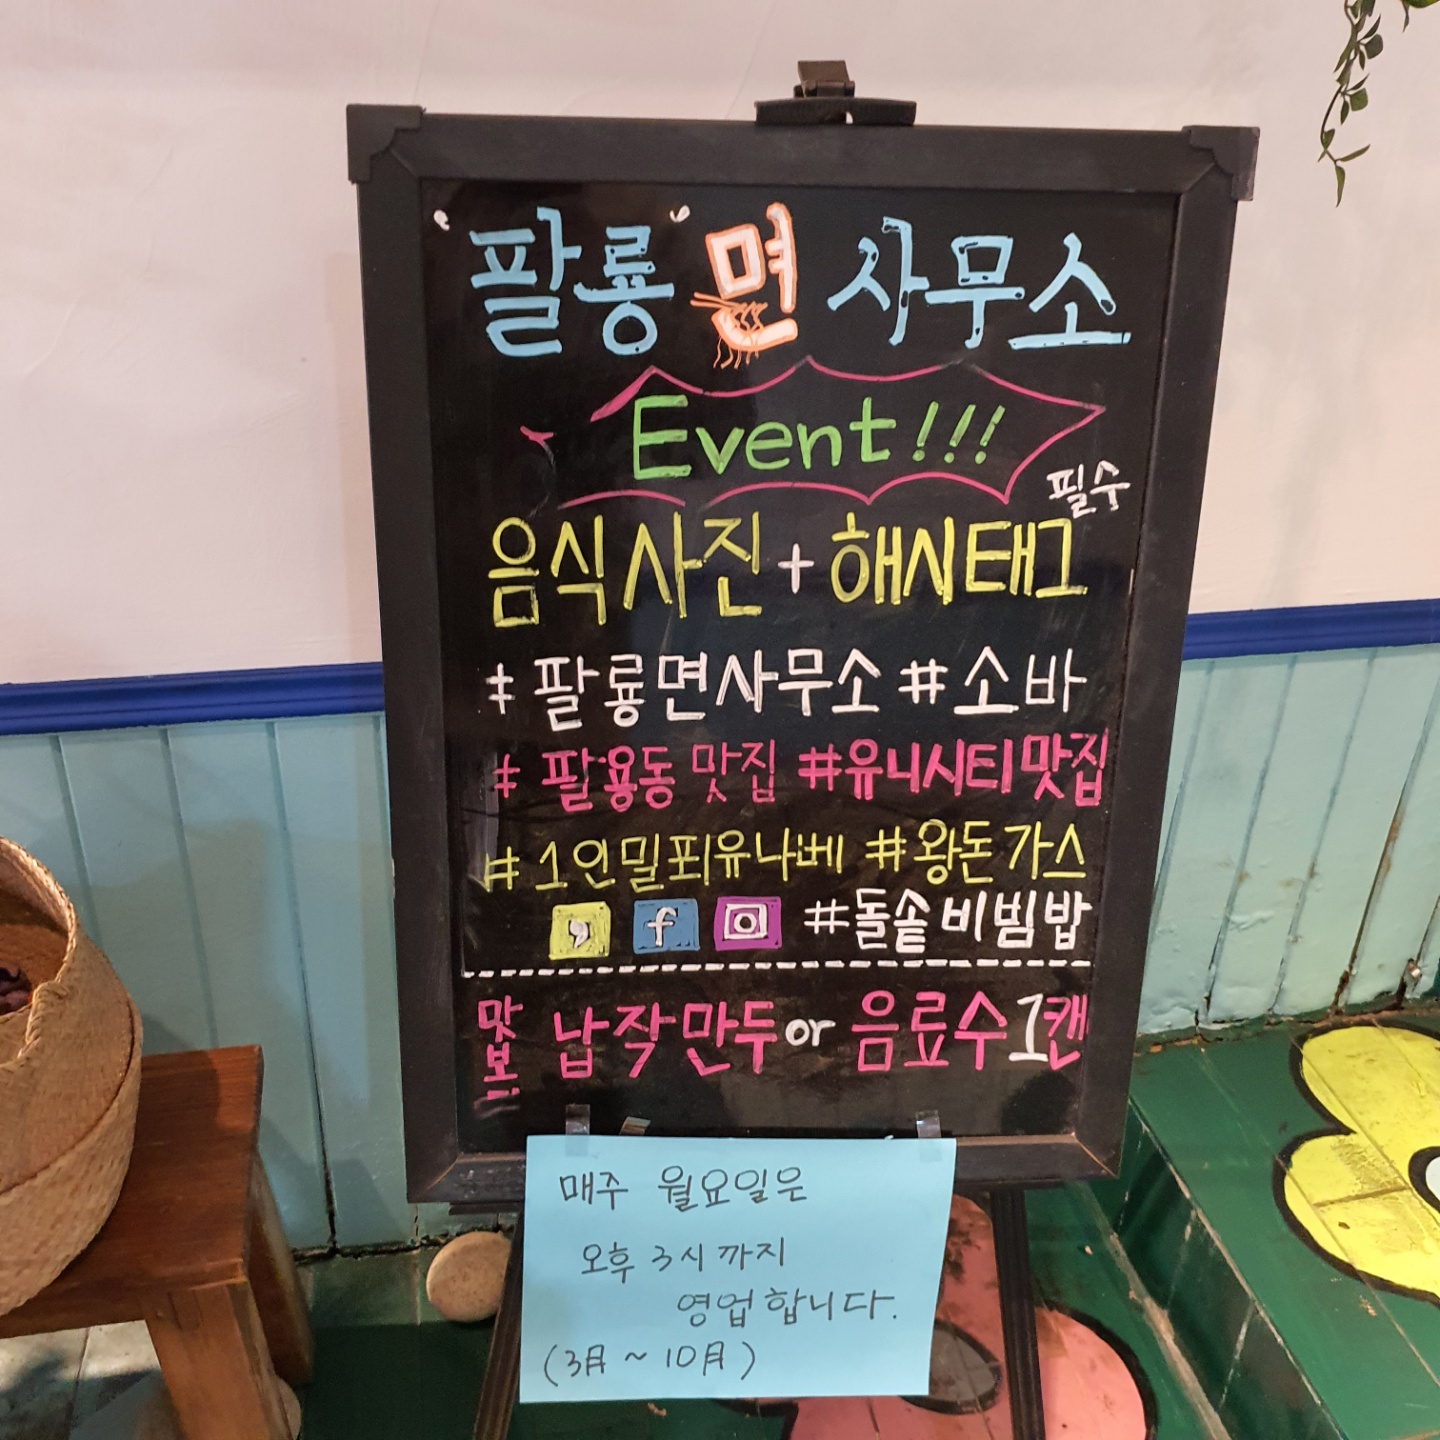 "팔룡"면사무소
Event!!!
필수
음식사진+해시태그
#팔룡면사무소 #소바
#팔용동 맛집 #유니시티맛집
#1인밀푀유나베 #왕돈가스
f #돌솥비빔밥
맛보 납작만두or 음료수1캔
매주 월요일은
오후 3시까지
영업합니다.
(3月~10月)